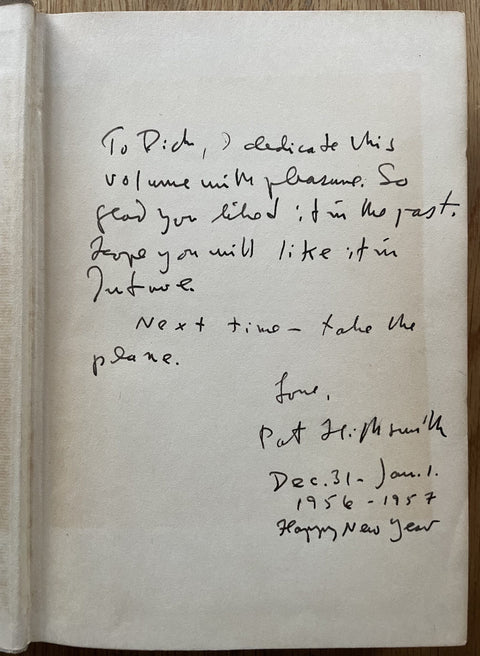 To Dick, I dedicate this
volume with pleasure. So
glad you liked it in the past.
Hope you will like it in
future.
Next time - take the
plane.
Love,
Pat Highsmith
Dec. 31 - Jan. 1.
1956 - 1957
Happy New Year